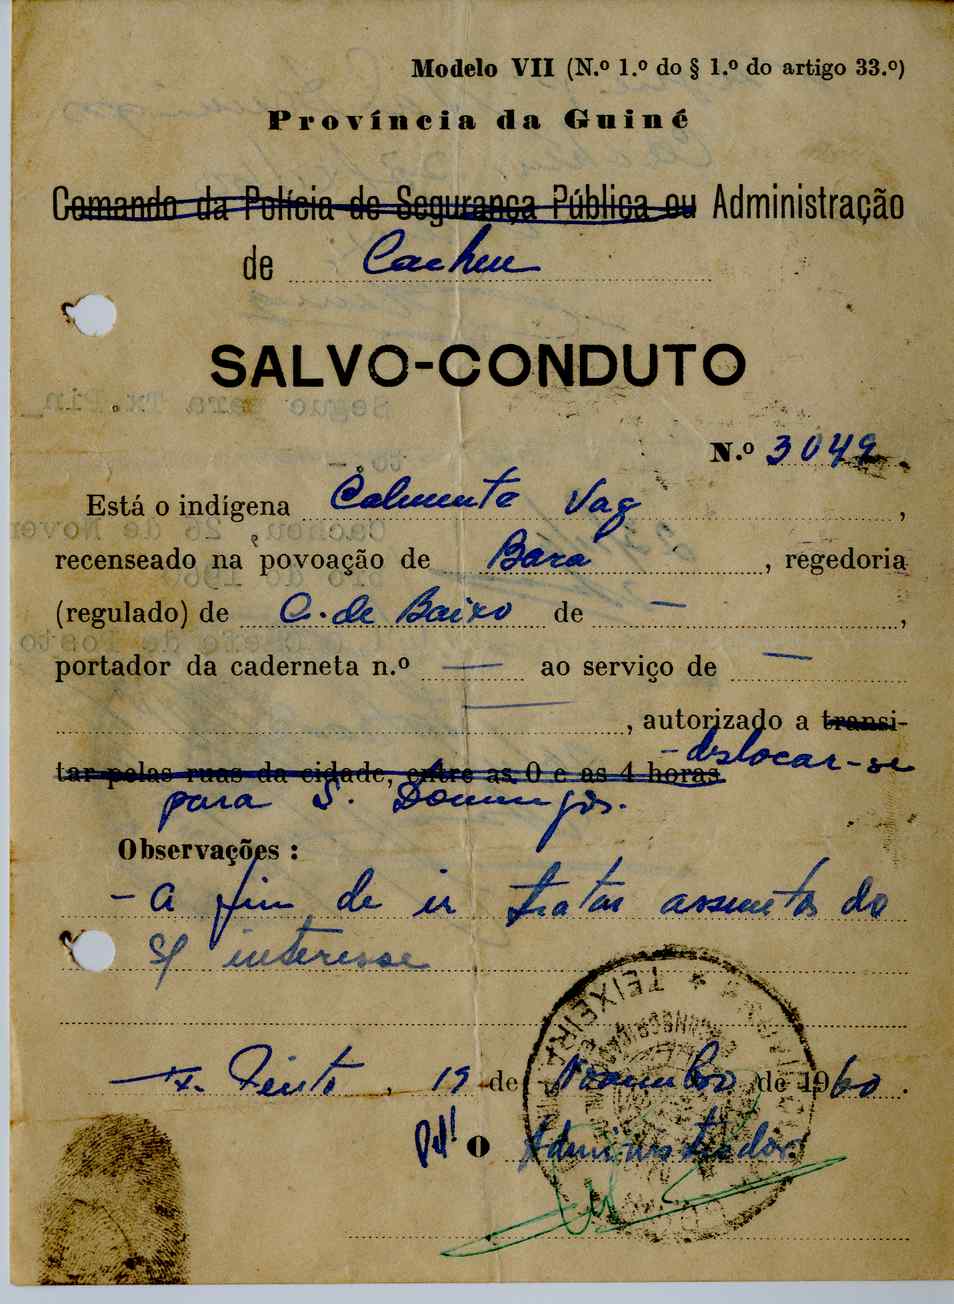 Modelo VII (N.º 1.º do § 1.º do artigo 33.º)
Província da Guiné
Comando da Polícia de Segurança Pública ou Administração
de Cacheu
SALVO-CONDUTO
N.º 3049
Está o indígena Vaz,
recenseado na povoação de Bara, regedoria
(regulado) de C. de Baixo de —,
portador da caderneta n.º — ao serviço de —
—, autorizado a transi-
tar pelas ruas da cidade, entre as 0 e as 4 horas - deslocar-se
para S. Domingos.
Observações:
- A fim de ir tratar assuntos do
s/ interesse
Tx. Pinto, 19 de Novembro de 1960.
Pel' O Administrador
TEIXEIRA